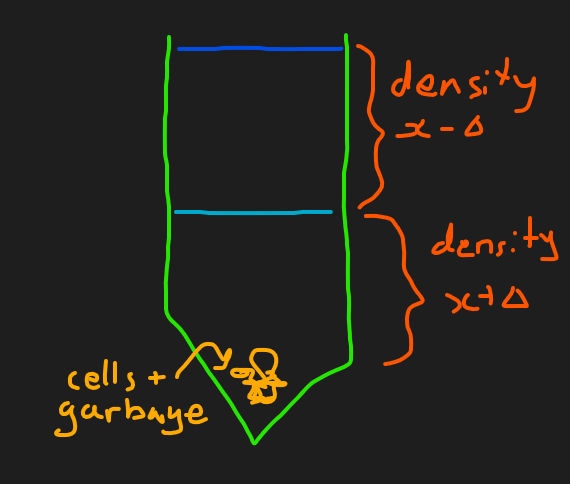 density
x - Δ
density
x + Δ
cells +
garbage